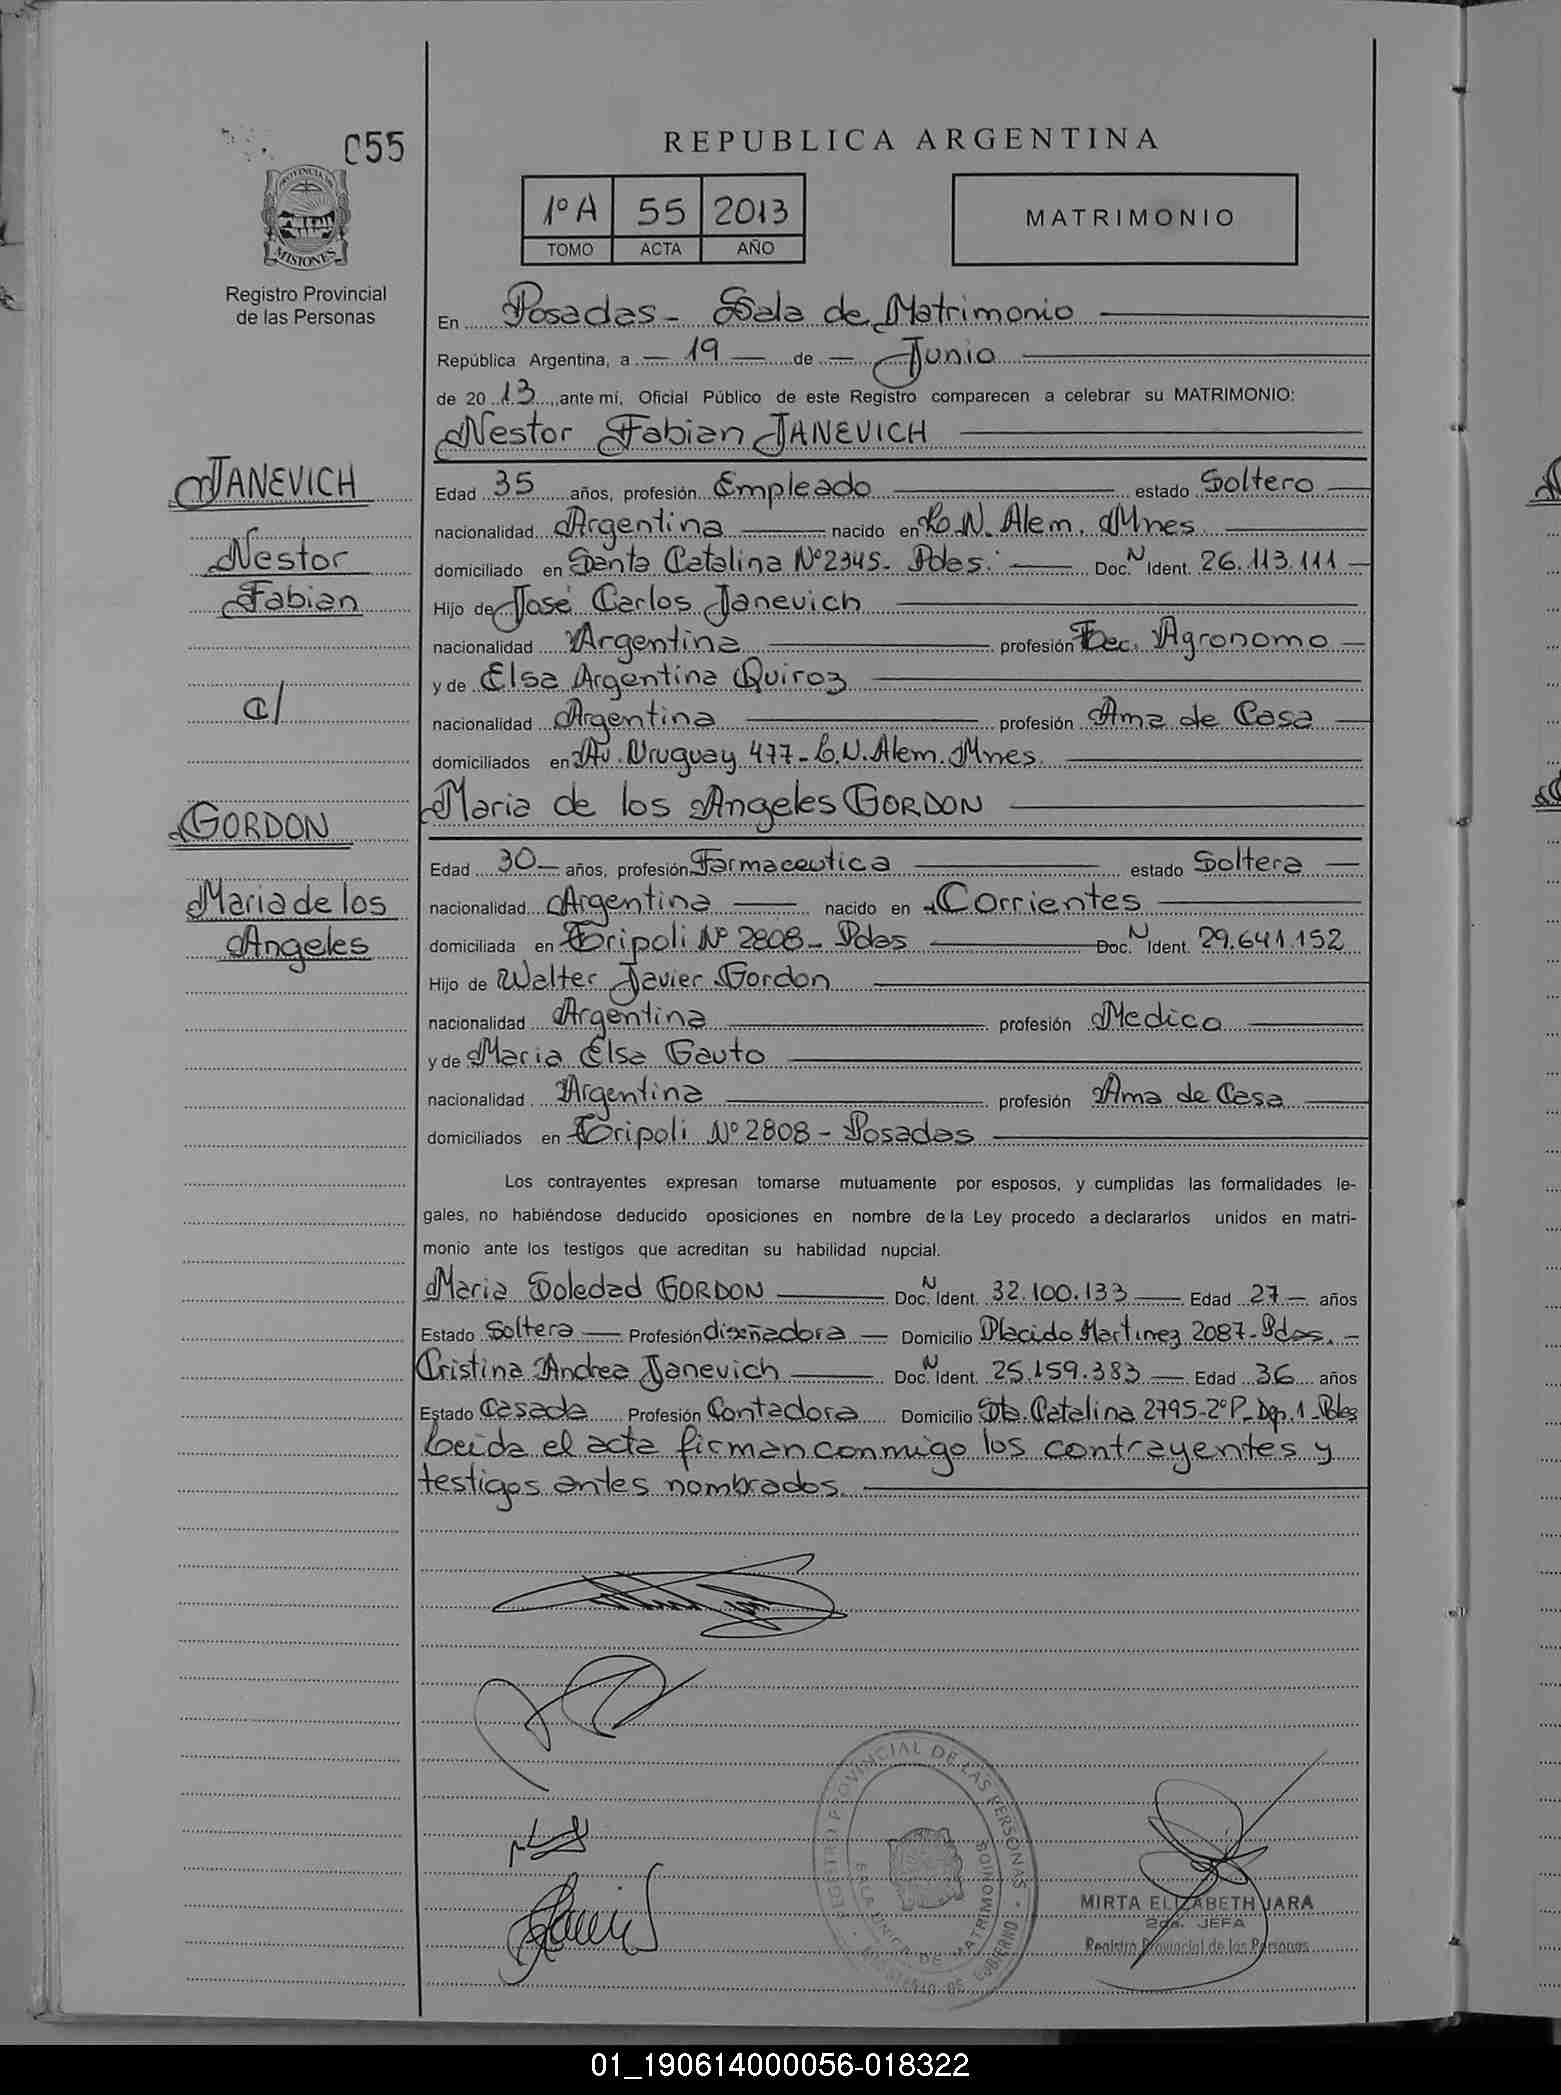 055
PROVINCIA DE
MISIONES
Registro Provincial
de las Personas
REPUBLICA ARGENTINA
1º A 55 2013
TOMO ACTA AÑO
MATRIMONIO
En Posadas - Sala de Matrimonio
República Argentina, a 19 de Junio
de 2013, ante mí, Oficial Público de este Registro comparecen a celebrar su MATRIMONIO:
Nestor Fabian JANEVICH
JANEVICH
Nestor
Fabian
c/
GORDON
Maria de los
Angeles
Edad 35 años, profesión Empleado estado Soltero
nacionalidad Argentina nacido en L.N. Alem. Mnes
domiciliado en Santa Catalina Nº 2345- Pdas. Doc. N Ident. 26.113.111
Hijo de José Carlos Janevich
nacionalidad Argentina profesión Tec. Agronomo
y de Elsa Argentina Quiroz
nacionalidad Argentina profesión Ama de Casa
domiciliados en Av. Uruguay 477- L.N. Alem. Mnes.
Maria de los Angeles GORDON
Edad 30 años, profesión Farmaceutica estado Soltera
nacionalidad Argentina nacido en Corrientes
domiciliada en Tripoli Nº 2808- Pdas Doc. N Ident. 29.641.152
Hijo de Walter Javier Gordon
nacionalidad Argentina profesión Medico
y de Maria Elsa Gauto
nacionalidad Argentina profesión Ama de Casa
domiciliados en Tripoli Nº 2808 - Posadas
Los contrayentes expresan tomarse mutuamente por esposos, y cumplidas las formalidades le-
gales, no habiéndose deducido oposiciones en nombre de la Ley procedo a declararlos unidos en matri-
monio ante los testigos que acreditan su habilidad nupcial.
Maria Soledad GORDON Doc. N Ident. 32.100.133 Edad 27 años
Estado Soltera Profesión diseñadora Domicilio Placido Martinez 2087- Pdas.
Cristina Andrea Janevich Doc. N Ident. 25.159.383 Edad 36 años
Estado Casada Profesión Contadora Domicilio Sta. Catalina 2795-2ºP- Dep. 1 - Pdas
Leida el acta firman conmigo los contrayentes y
testigos antes nombrados.
REGISTRO PROVINCIAL DE LAS PERSONAS
SALA UNICA DE MATRIMONIOS
MINISTERIO DE GOBIERNO
MIRTA ELIZABETH JARA
2da. JEFA
Registro Provincial de las Personas
01_190614000056-018322